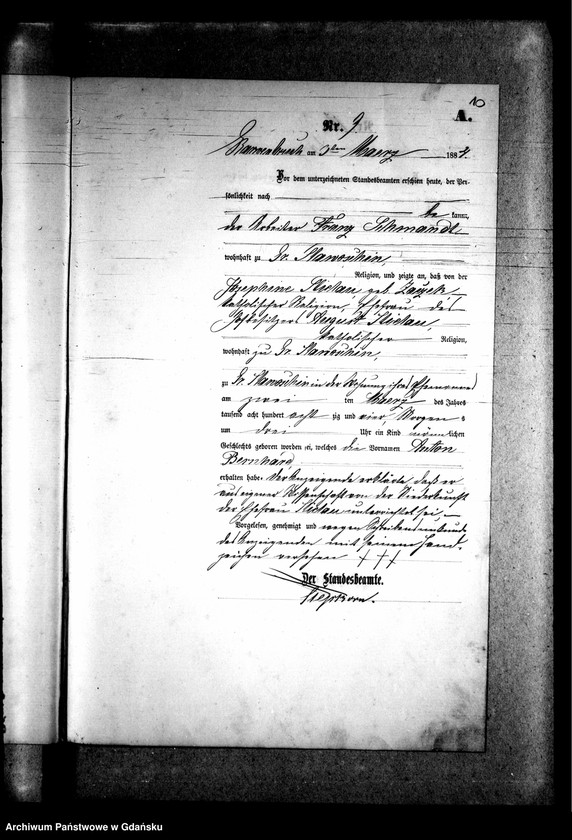 10
A.
Nr. 9
am 3ten Maerz 1884.
Vor dem unterzeichneten Standesbeamten erschien heute, der Per-
sönlichkeit nach
be kannt,
der Arbeiter Franz Schmandt
wohnhaft zu Gr.
Religion, und zeigte an, daß von der
Josephine geb.
katholischer Religion, Ehefrau des
Hofbesitzers August
katholischer Religion,
wohnhaft zu Gr.
zu Gr. in der Wohnung ihres Ehemannes
am zwei ten Maerz des Jahres
tausend acht hundert acht zig und vier, Morgens
um drei Uhr ein Kind männlichen
Geschlechts geboren worden sei, welches die Vornamen Anton
Bernhard
erhalten habe. Der Anzeigende erklärte, daß er
aus eigener Wissenschaft von der Niederkunft
der Ehefrau unterrichtet sei —
Vorgelesen, genehmigt und wegen Schreibensunkunde
des Anzeigenden mit seinem Hand-
zeichen versehen +++
Der Standesbeamte.
Archiwum Państwowe w Gdańsku